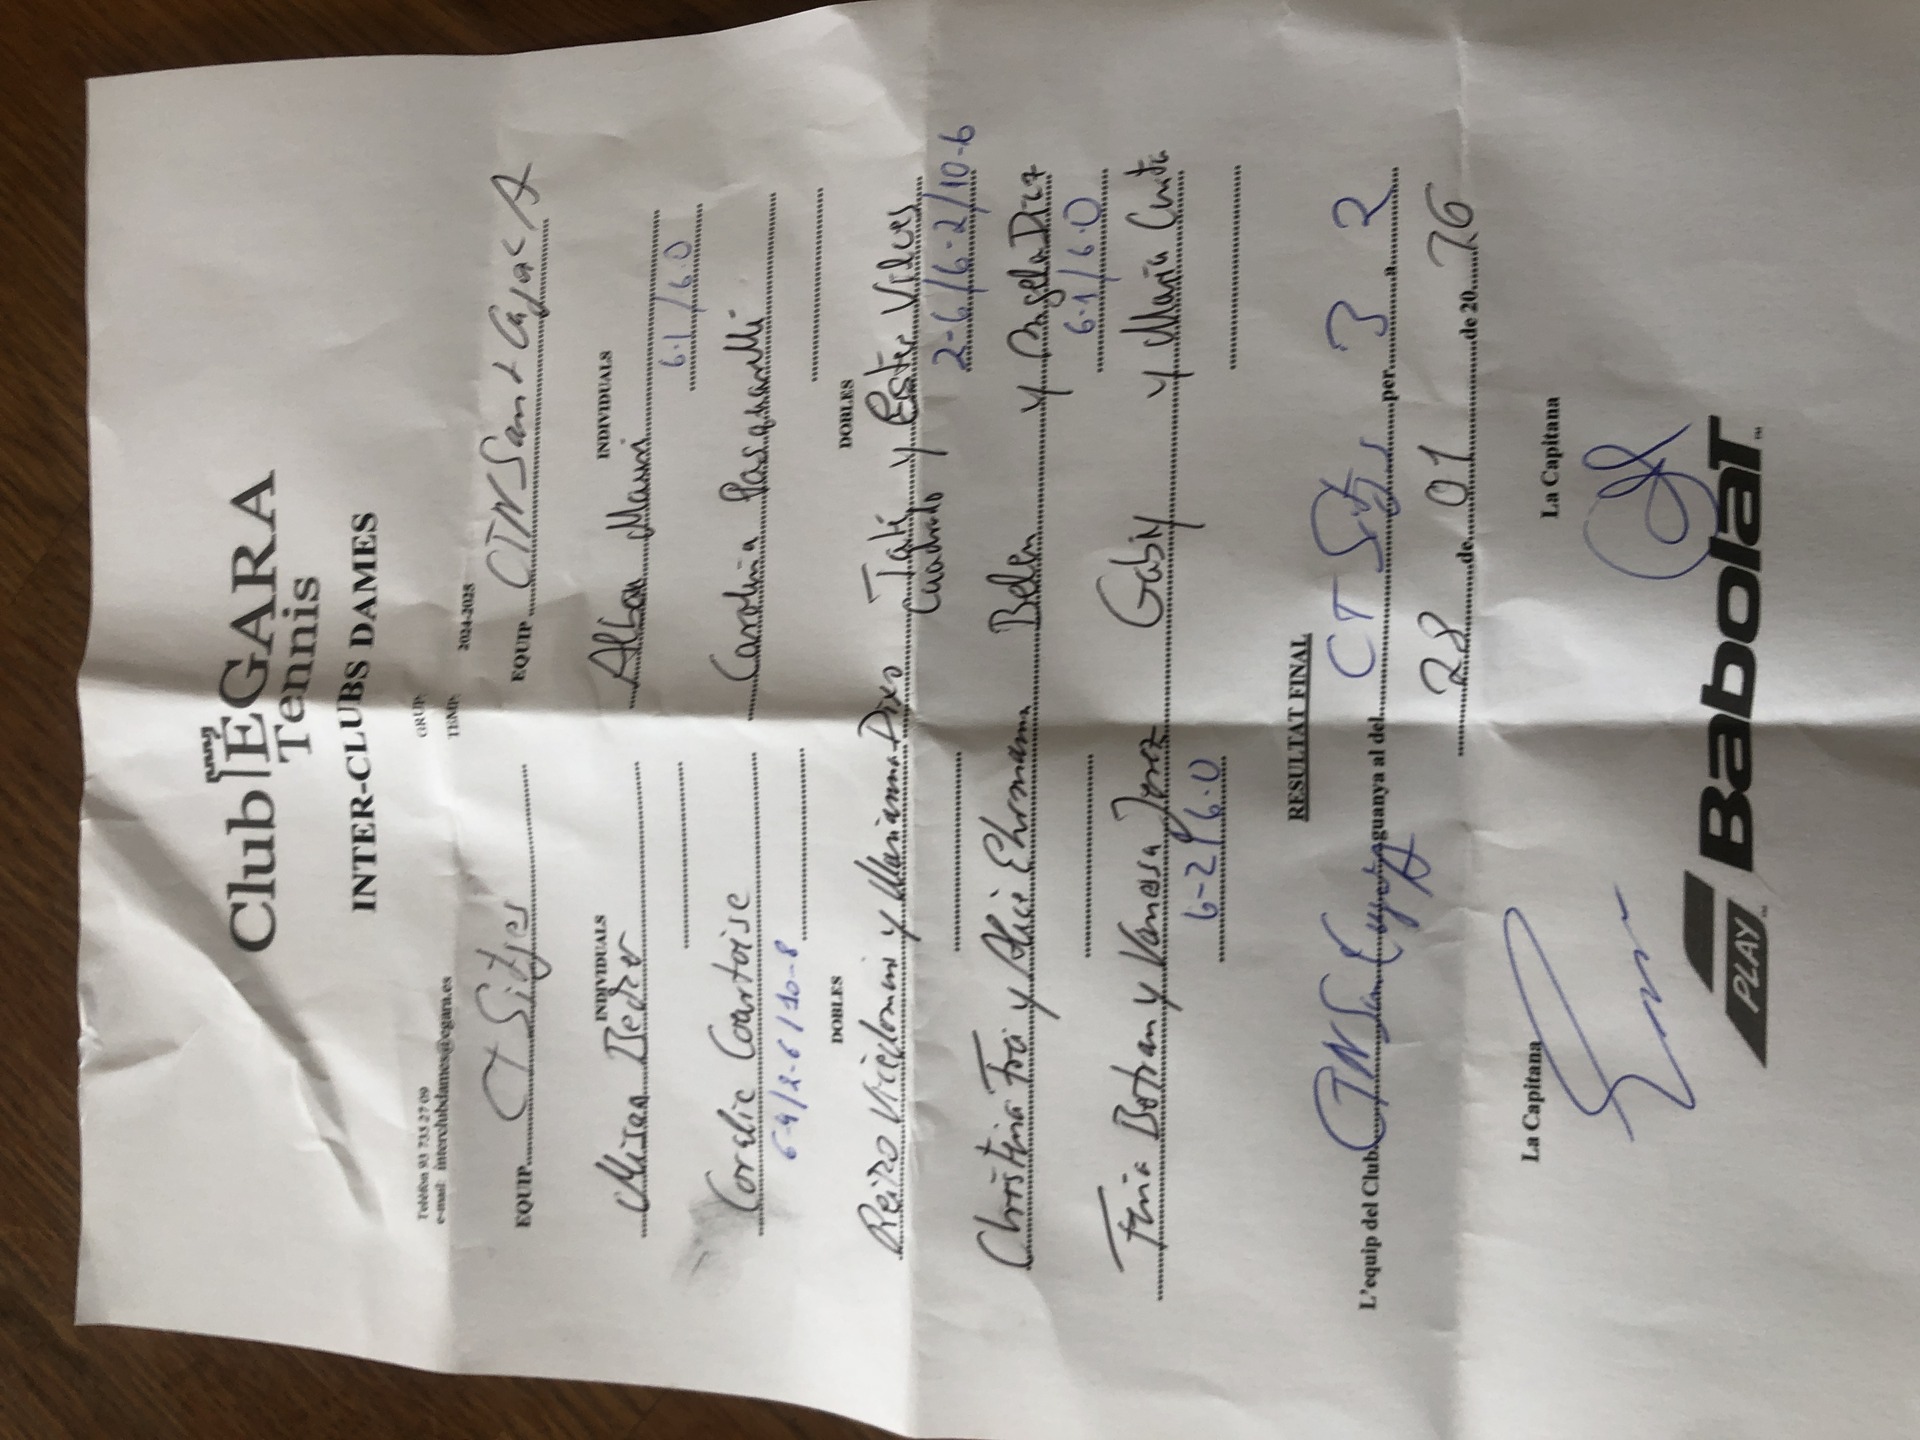 Club EGARA
Tennis
INTER-CLUBS DAMES
Telèfon 93 735 27 09 GRUP:
e-mail: interclubdames@egara.es TEMP: 2024-2025
EQUIP CT Sitges EQUIP CTNSant Cugat A
INDIVIDUALS INDIVIDUALS
Alba Mauri
6-1/6-0
Coralie Courtoise Carolina
6-4/2-6/10-8
DOBLES DOBLES
y Marianna y Ester Vilves
Cuadrado 2-6/6-2/10-6
Christina y Alice Ehrmann Belen y Angela Diaz
6-1/6-0
Botran y Vanessa Jerez Gabix y Maria
6-2/6-0
RESULTAT FINAL
L'equip del Club CTNSan Cugat A guanya al del CT Sitges per 3 a 2
28 de 01 de 20 26
La Capitana La Capitana
PLAY Babolat